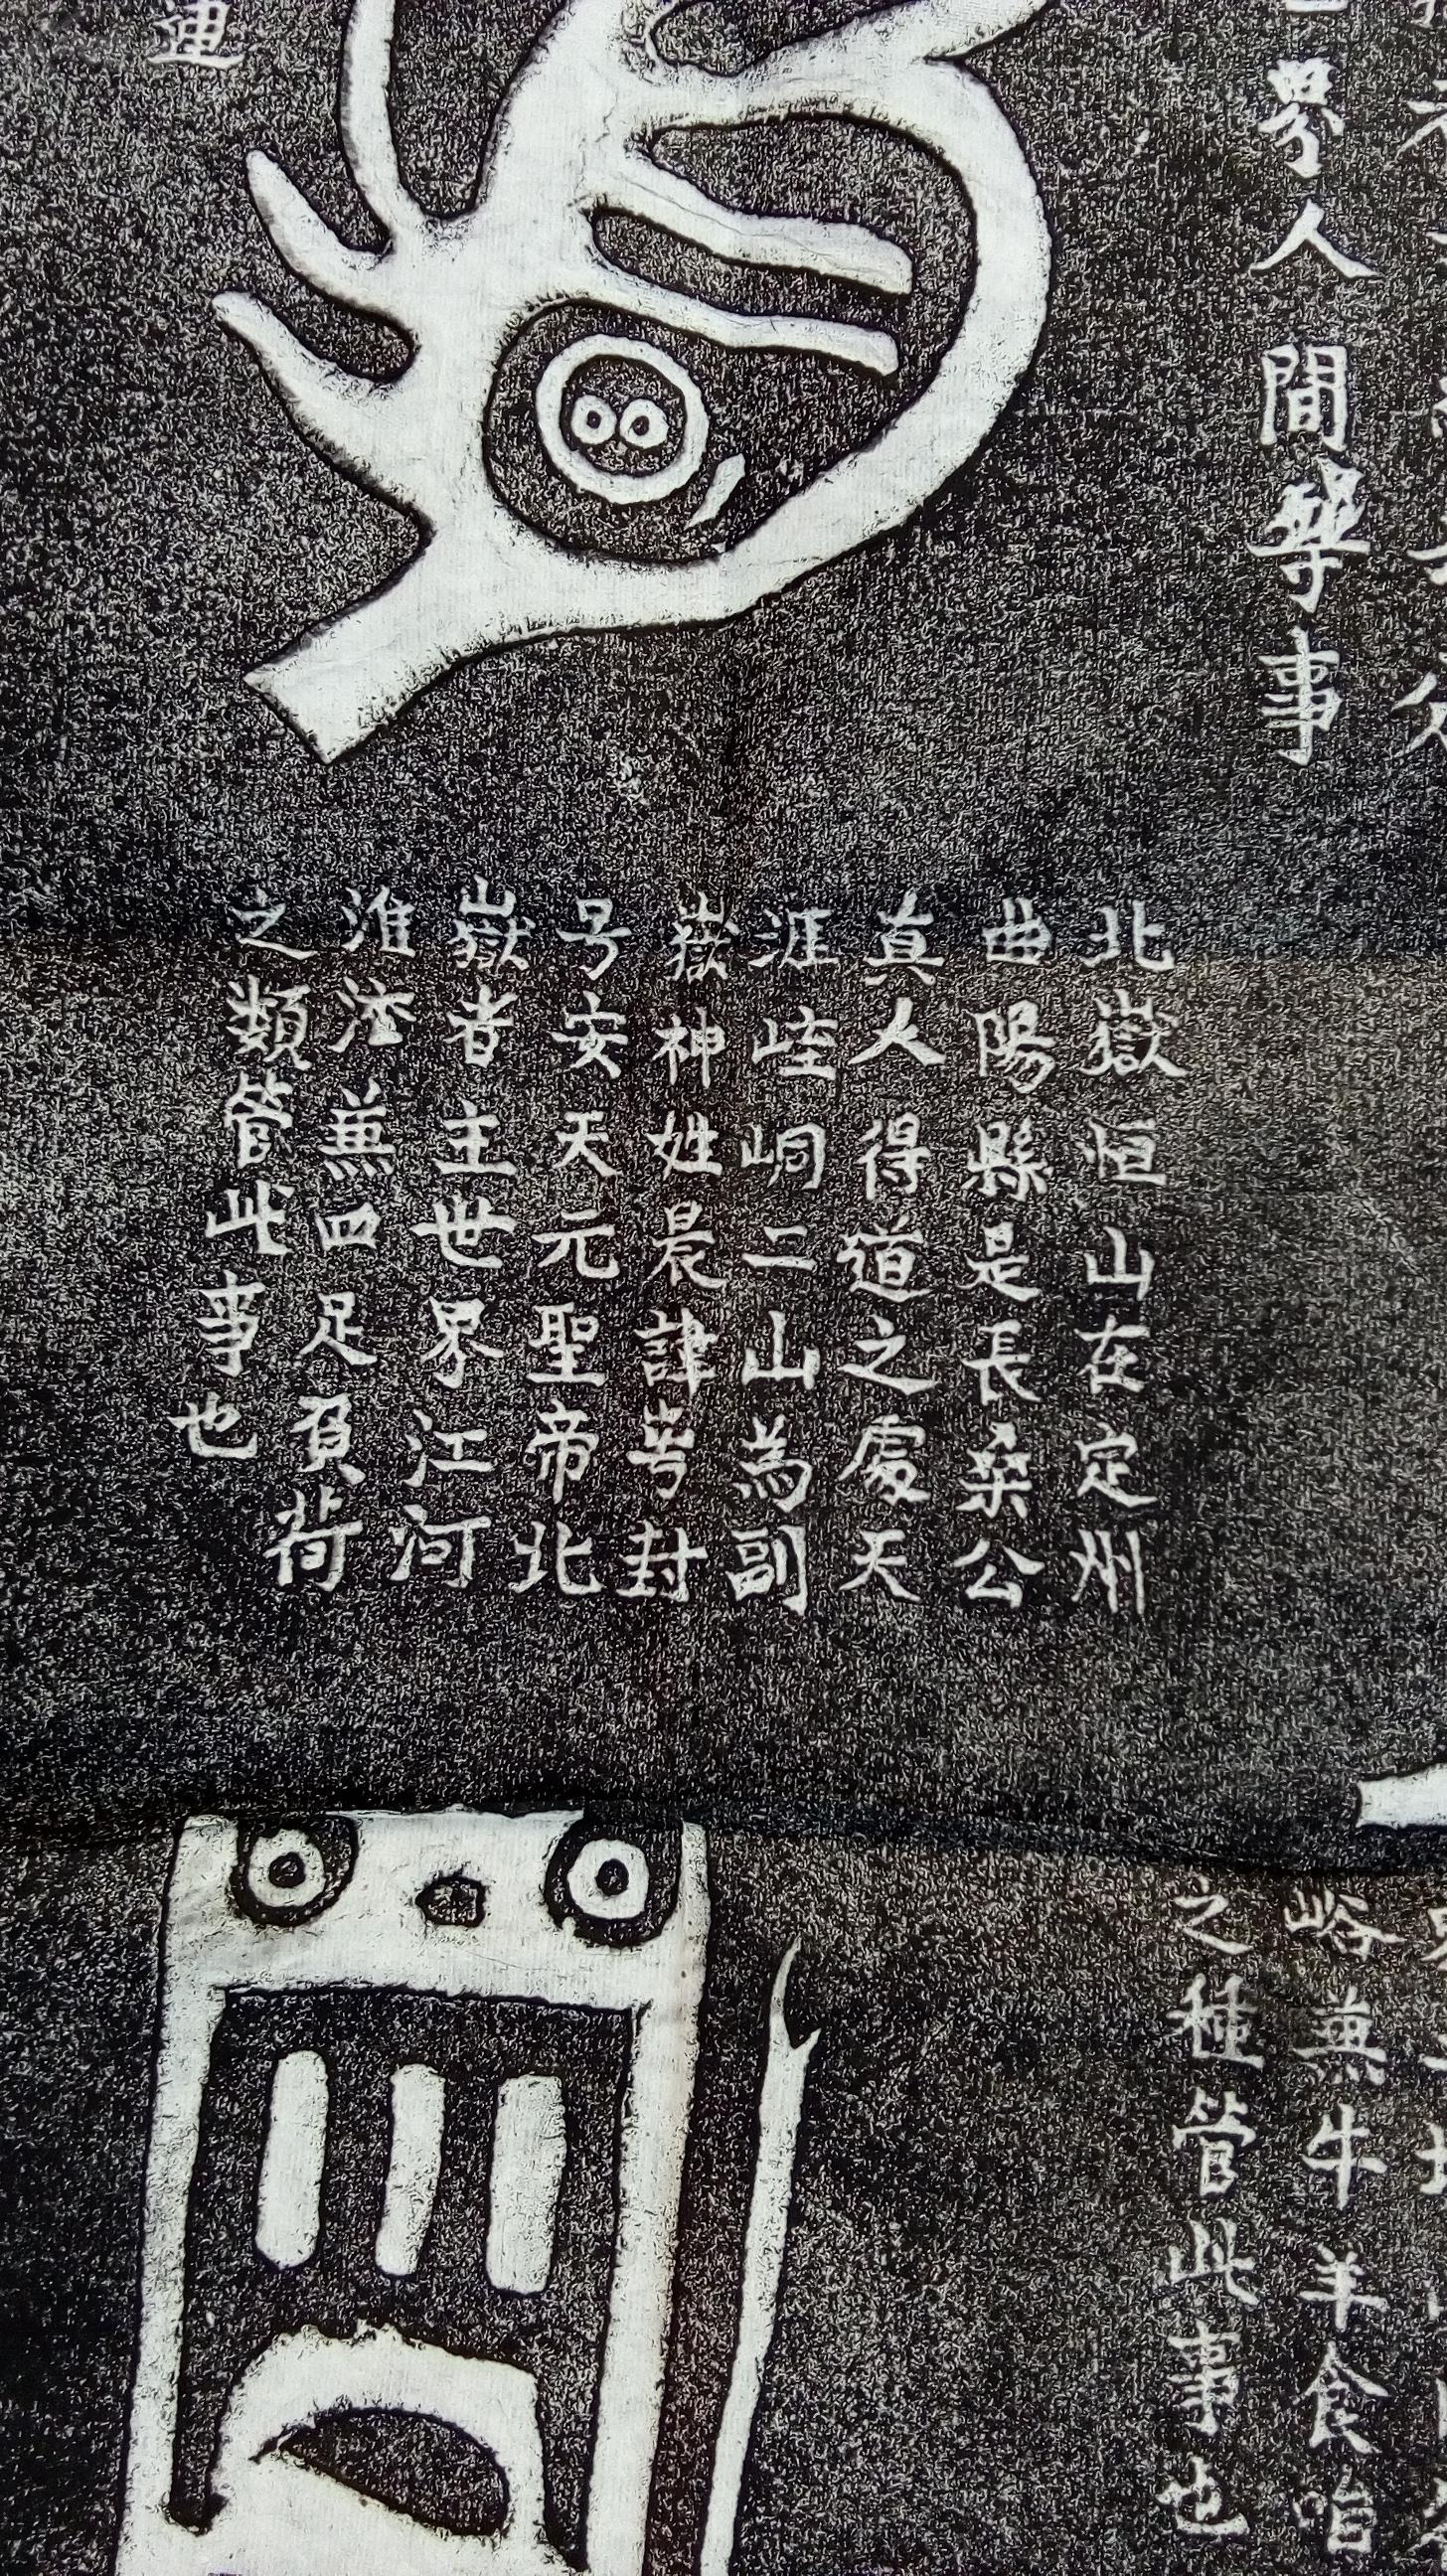 界人間事
北嶽恒山在定州
曲陽縣是長桑公
真人得道之處天
涯崆峒二山為副
嶽神姓晨諱封
号安天元聖帝北
嶽者主世界江河
淮兼四足負荷
之類管此事也
峪兼牛羊食啗
之種管此事也